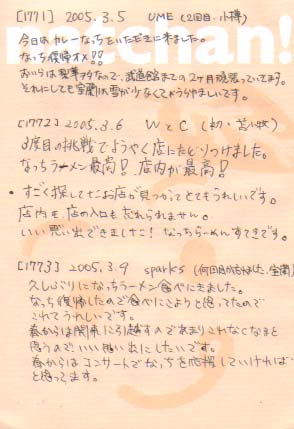 [1771] 2005.3.5 UME (2回目.小樽)
今日はカレーなっちをいただきに来ました。
なっち復帰オメ!!
おいらは なので、武道館までの2ヶ月頑張っています。
それにしても室蘭は雪が少なくてうらやましいです。
[1772] 2005.3.6 WとC (初・苫小牧)
3度目の挑戦でようやく店にたどりつけました。
なっちラーメン最高! 店内が最高!
・すごく探してたお店が見つかってとてもうれしいです。
店内も、店の入口も忘れられません。
いい思い出できましたこ! なっちらーめんすてきです。
[1773] 2005.3.9 sparks (何回目か忘れました.室蘭)
久しぶりになっちラーメン食べにきました。
なっち復帰したので食べにこようと思ってたので
これてうれしいです。
春からは関東に引越すのであまりこれなくなると
思うので、いい思い出にしたいです。
春からはコンサートでなっちを応援していければ
と思ってます。